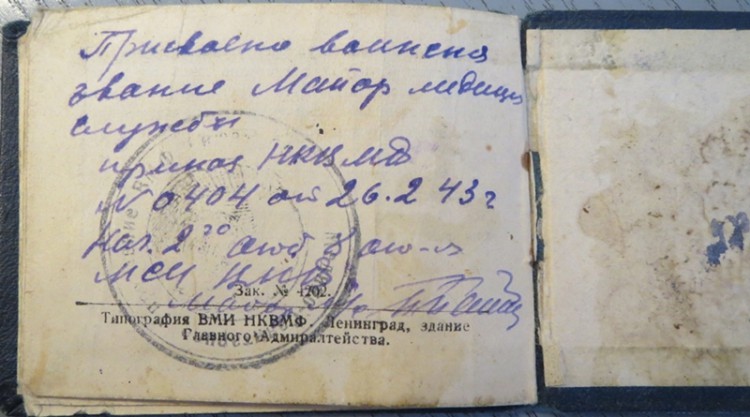 Присвоено воинско
звание Майор медицин
службы
приказ НКВМФ
№ 0404 от 26.2 43 г
Нач. 2го отд
МСУ
Зак. № 4202.
Типография ВМИ НКВМФ, Ленинград, здание
Главного Адмиралтейства.